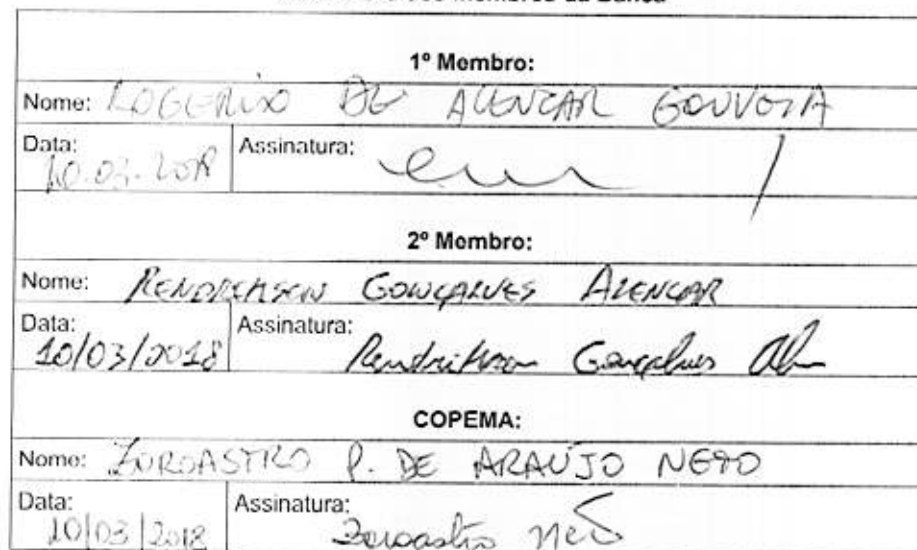 Membros da Banca
1º Membro:
Nome: ROGERIO DE ALENCAR GOUVEIA
Data: 10.03.2018 Assinatura:
2º Membro:
Nome: GONÇALVES ALENCAR
Data: 10/03/2018 Assinatura: Gonçalves
COPEMA:
Nome: ZOROASTRO P. DE ARAÚJO NETO
Data: 10/03/2018 Assinatura: Zoroastro Neto